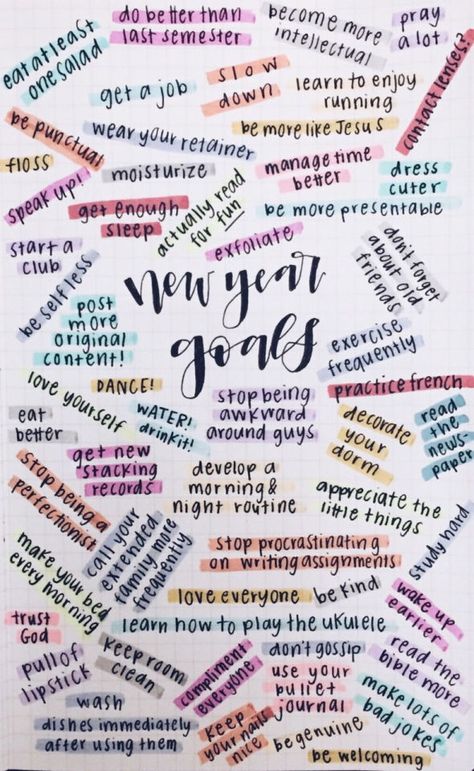 do better than
last semester
become more
intellectual
pray
a lot
eat at least
one salad
get a job
slow
down
learn to enjoy
running
contact lenses?
be punctual
wear your retainer
be more like Jesus
floss
moisturize
manage time
better
dress
cuter
speak up!
get enough
sleep
actually read
for fun
be more presentable
start a
club
exfoliate
don't forget
about old
friends
be selfless
new year
goals
post
more
original
content!
exercise
frequently
love yourself
DANCE!
practice french
eat
better
WATER!
drink it!
stop being
awkward
around guys
decorate
your
dorm
read
the
news
paper
get new
stacking
records
develop a
morning &
night routine
stop being a
perfectionist
appreciate the
little things
call your
extended
family more
frequently
study hard
stop procrastinating
on writing assignments
make your bed
every morning
love everyone
be kind
wake up
earlier
trust
God
learn how to play the ukulele
pull of
lipstick
keep room
clean
compliment
everyone
don't gossip
read the
bible more
use your
bullet
journal
make lots of
bad jokes
wash
dishes immediately
after using them
keep
your nails
nice
be genuine
be welcoming